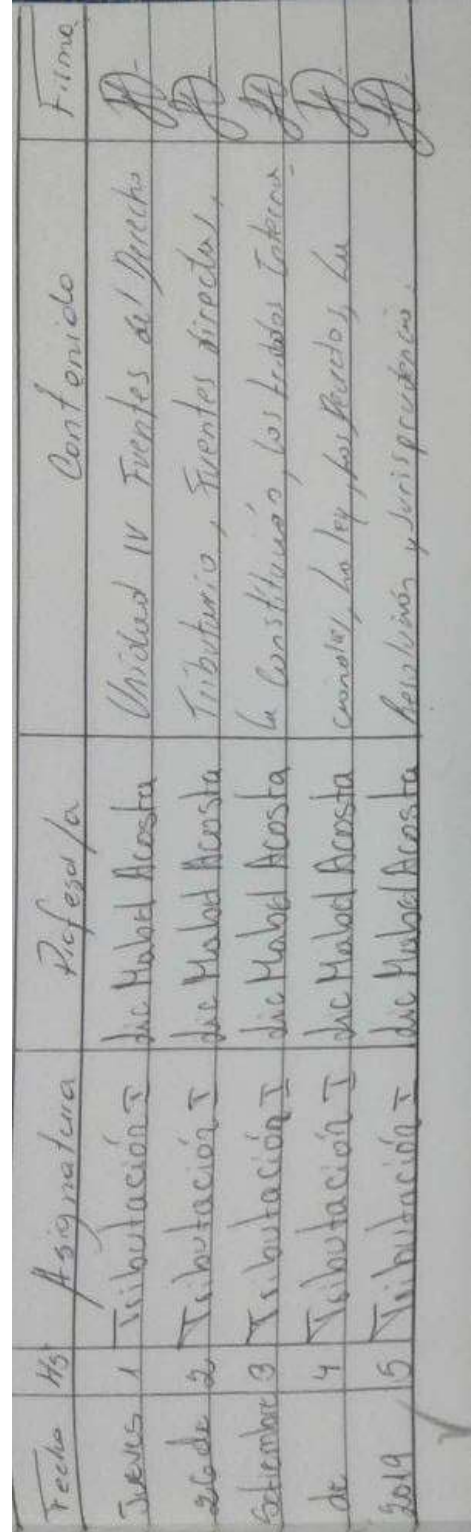 Fecha Hs Asignatura Profesor/a Contenido Firma
Jueves 1 Tributación I Lic Mabel Acosta Unidad IV Fuentes del Derecho
26 de 2 Tributación I Lic Mabel Acosta Tributario, Fuentes directas,
Setiembre 3 Tributación I Lic Mabel Acosta La Constitución, los tratados Interna-
de 4 Tributación I Lic Mabel Acosta cionales, La ley, Los Decretos, La
2019 5 Tributación I Lic Mabel Acosta Resolución y Jurisprudencia.